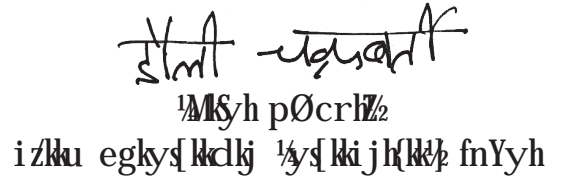 डौली चक्रवर्ती
¼MkSyh pØcrhZ½
iz/kku egkys[kkdkj ¼ys[kk ijh{kk½] fnYyh